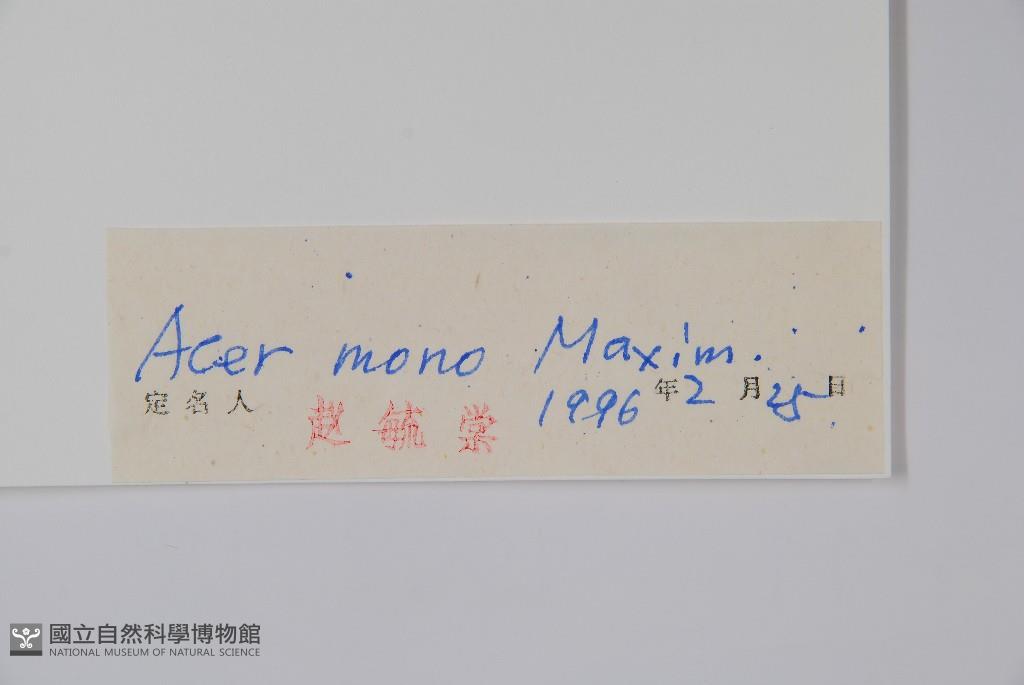 Acer mono Maxim.
定名人 赵毓棠 1996年2月25日
國立自然科學博物館
NATIONAL MUSEUM OF NATURAL SCIENCE